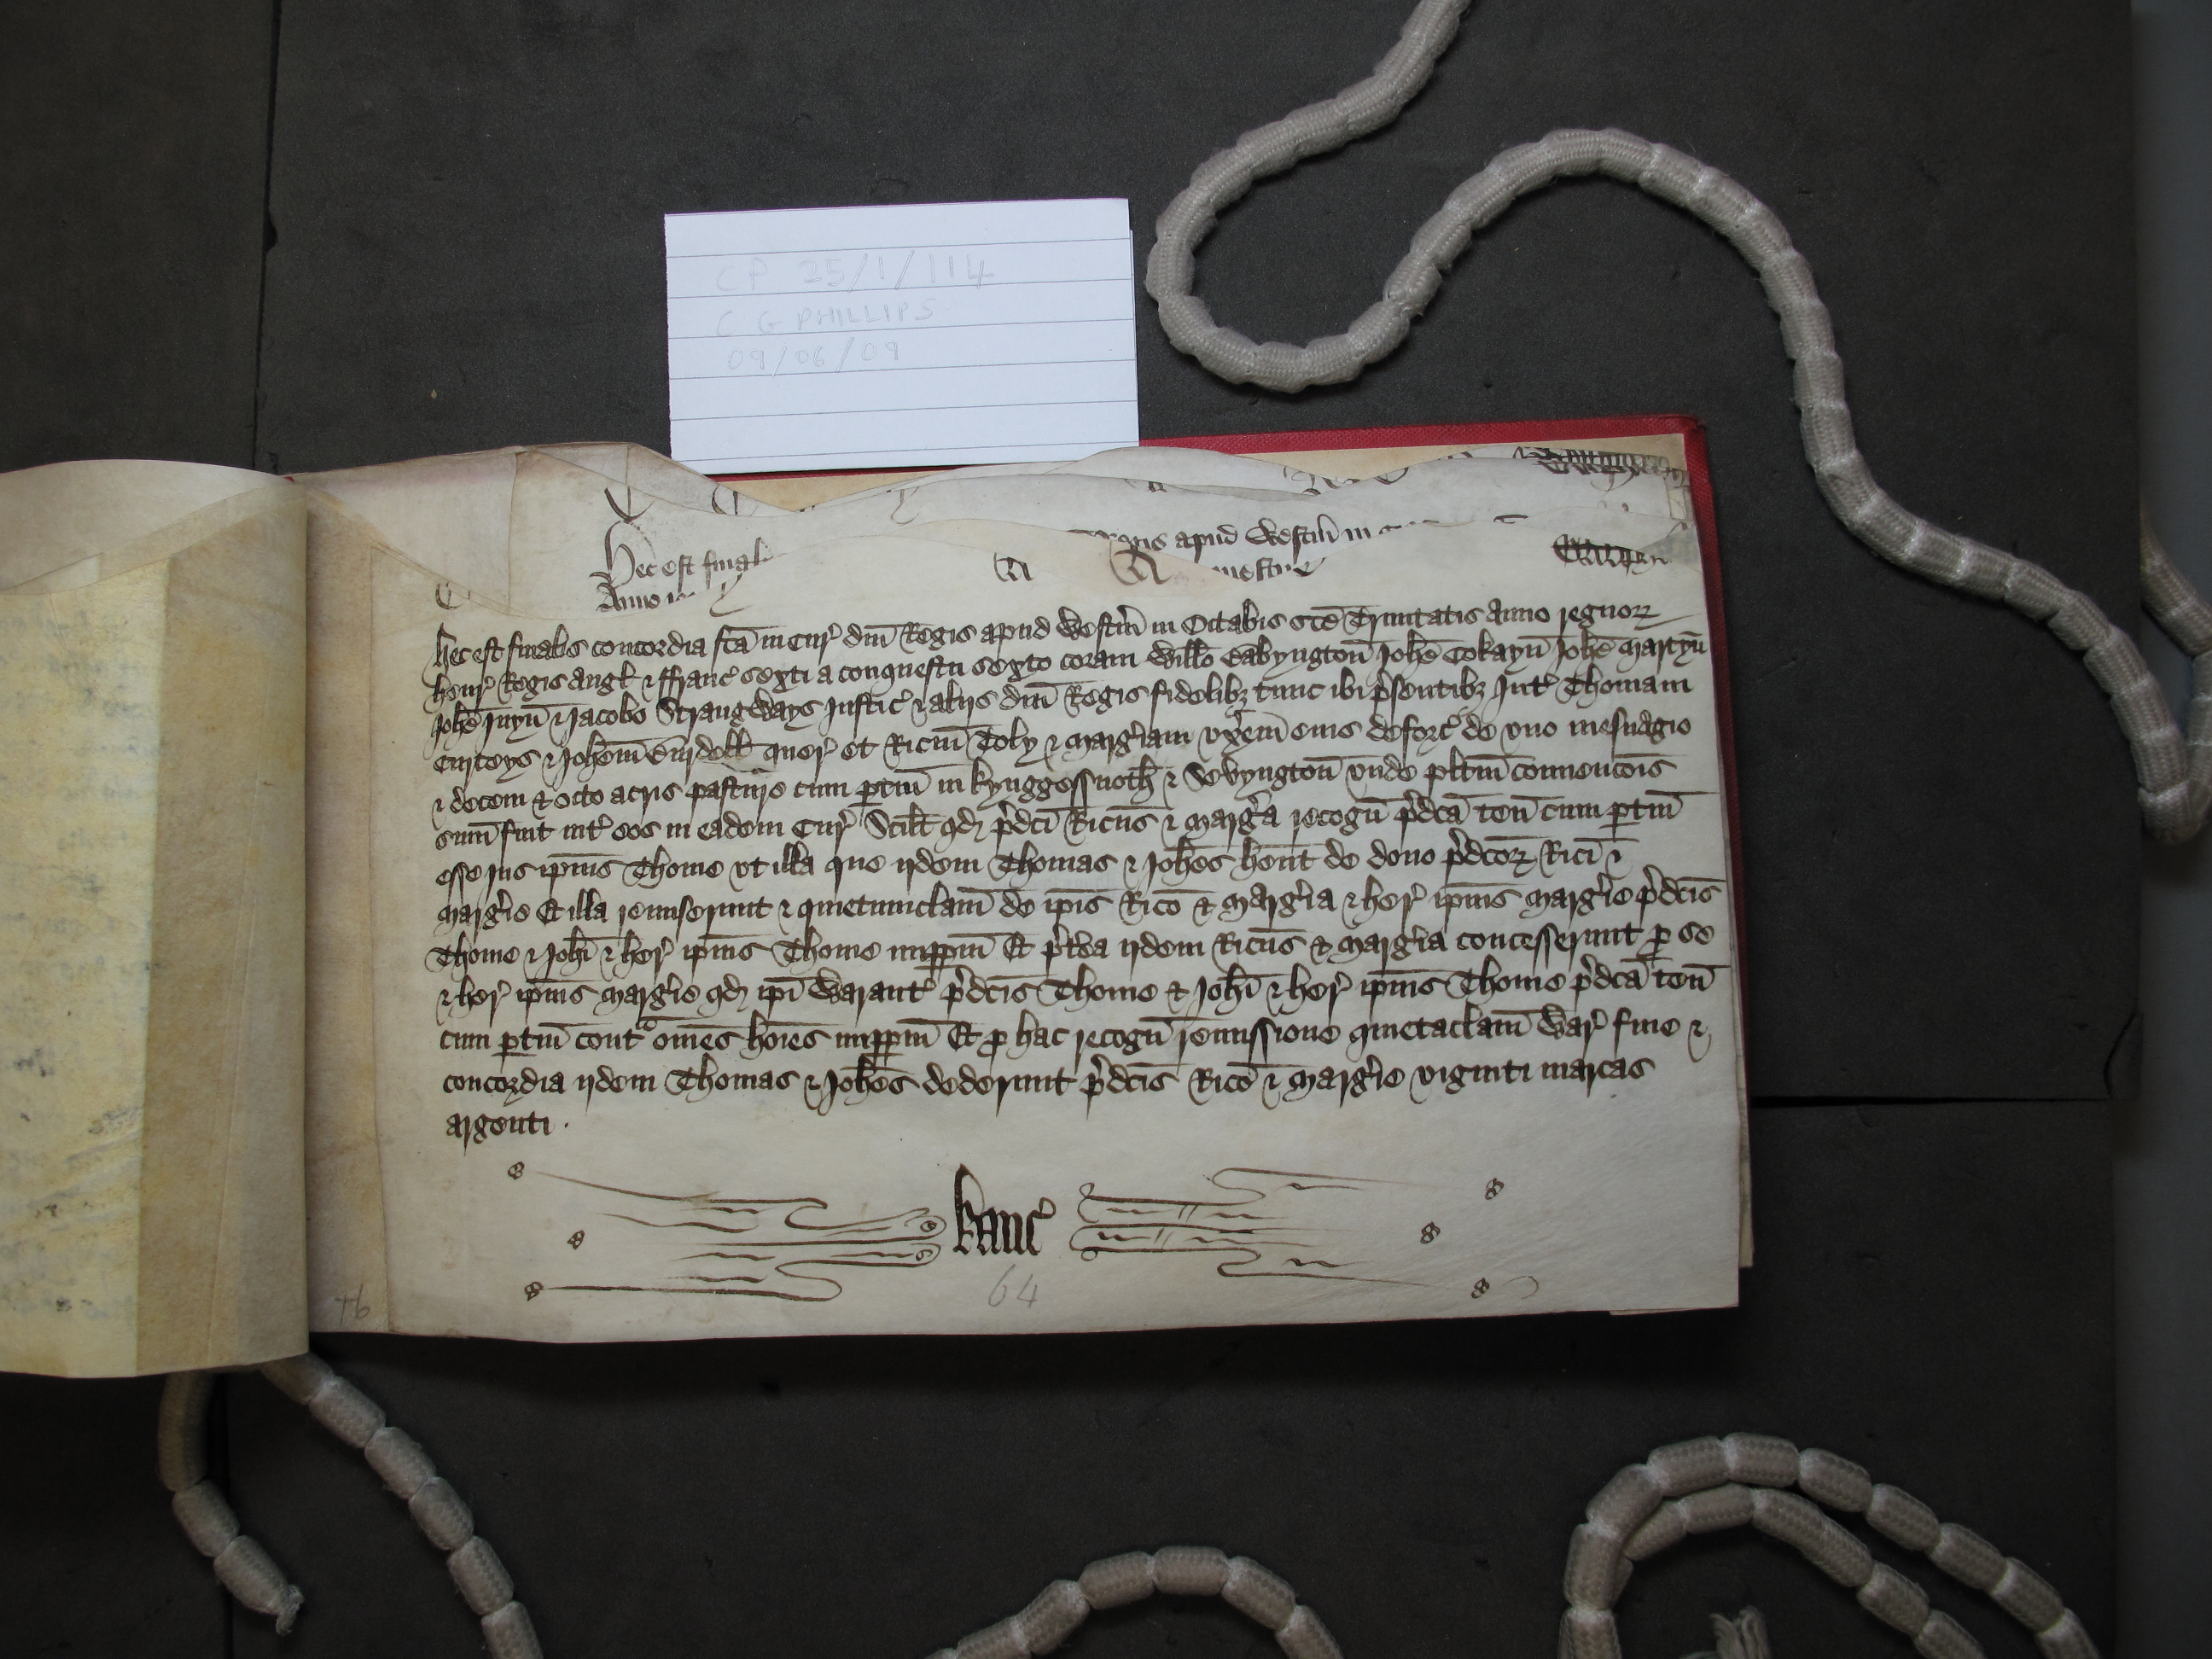 CP 25/1/114
C G PHILLIPS
09/06/09
Hec est final
apud Westm̄ in
Anno
Hec est finalis concordia fc̄a in Cur̉ dn̄i Regis apud Westm̄ in Octabis sc̄e Trinitatis anno regnoꝝ
henr̉ Regis Angl̉ ⁊ ffranc̉ sexti a conquestu sexto coram Willo Babyngton̄ Joh̄e Cokayn̄ Joh̄e Martyn̄
Joh̄e Juyn̄ ⁊ Jacobo Strangways Justic̉ ⁊ alijs dn̄i Regis fidelibꝫ tunc ibi p̉sentibꝫ Int̉ Thomam
Curteys ⁊ Joh̄em Burdell quer̉ et Ric̄m Toly ⁊ Marg̉iam vx̄em eius deforc̉ de vno mesuagio
⁊ decem ⁊ octo acris pasture cum ꝑtin̄ in kynggessnoth̄ ⁊ Sevyngton̄ vnde plitm̄ conuencōis
sum̄ fuit int̉ eos in eadem Cur̉ Scilt̄ qd̉ p̉dc̄i Ric̄us ⁊ Marg̉ia recogn̄ p̉dc̄a ten̄ cum ꝑtin̄
esse ius ip̄ius Thome vt illa que ijdem Thomas ⁊ Joh̄es hent̄ de dono p̉dc̄oꝝ Ric̄i ⁊
Marg̉ie Et illa remiserunt ⁊ quietumclam̄ de ip̄is Ric̄o ⁊ Marg̉ia ⁊ her̉ ip̄ius Marg̉ie p̉dc̄is
Thome ⁊ Joh̄i ⁊ her̉ ip̄ius Thome imꝑpm̄ Et p̉t̉ea ijdem Ric̄us ⁊ Marg̉ia concesserunt ꝑ se
⁊ her̉ ip̄ius Marg̉ie qd̉ ip̄i Warant̉ p̉dc̄is Thome ⁊ Joh̄i ⁊ her̉ ip̄ius Thome p̉dc̄a ten̄
cum ꝑtin̄ cont̉ om̄es hoīes imꝑpm̄ Et ꝓ hac recogn̄ remissione quietaclam̄ War̉ fine ⁊
concordia ijdem Thomas ⁊ Joh̄es dederunt p̉dc̄is Ric̄o ⁊ Marg̉ie viginti marcas
argenti .
kanc̉
64